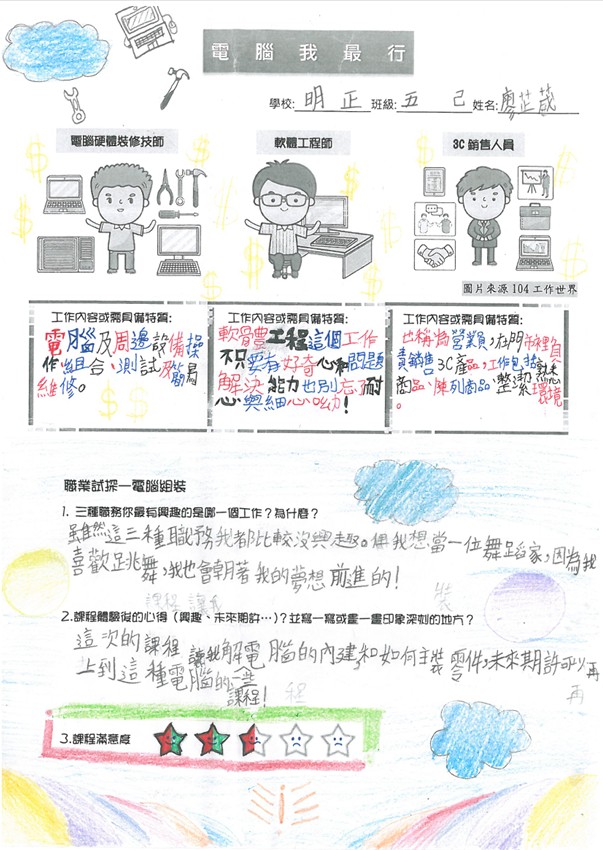 電腦我最行
學校:明正班級:五己姓名:廖芷葳
電腦硬體裝修技師
軟體工程師
3C 銷售人員
圖片來源 104 工作世界
工作內容或需具備特質:
電腦及周邊設備操
作組合、測試及簡易
維修。
工作內容或需具備特質:
軟骨豊工程這個工作
不只要有好奇心和問題
解決能力也別忘了耐
心與細心呦!
工作內容或需具備特質:
也稱為營業員,在門市裡負
責銷售3C產品,工作包括熟悉
商品、陳列商品、整潔環境
。
職業試探—電腦組裝
1. 三種職務你最有興趣的是哪一個工作?為什麼?
雖然這三種職務我都比較沒興趣。但我想當一位舞蹈家,因為我
喜歡跳舞,我也會朝著我的夢想前進的!
課程 讓我
裝
2.課程體驗後的心得 (興趣、未來期許…)?並寫一寫或畫一畫印象深刻的地方?
這次的課程讓我解電腦的內建,和如何主裝零件,未來期許可以再
上到這種電腦的一些
課程!
程
再
3.課程滿意度